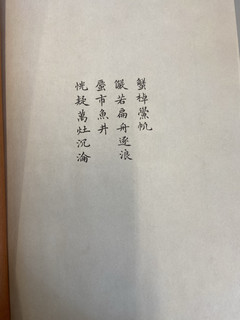 蟹椁鱟帆
儼若扁舟逐浪
蜃市魚井
恍疑萬灶沉淪